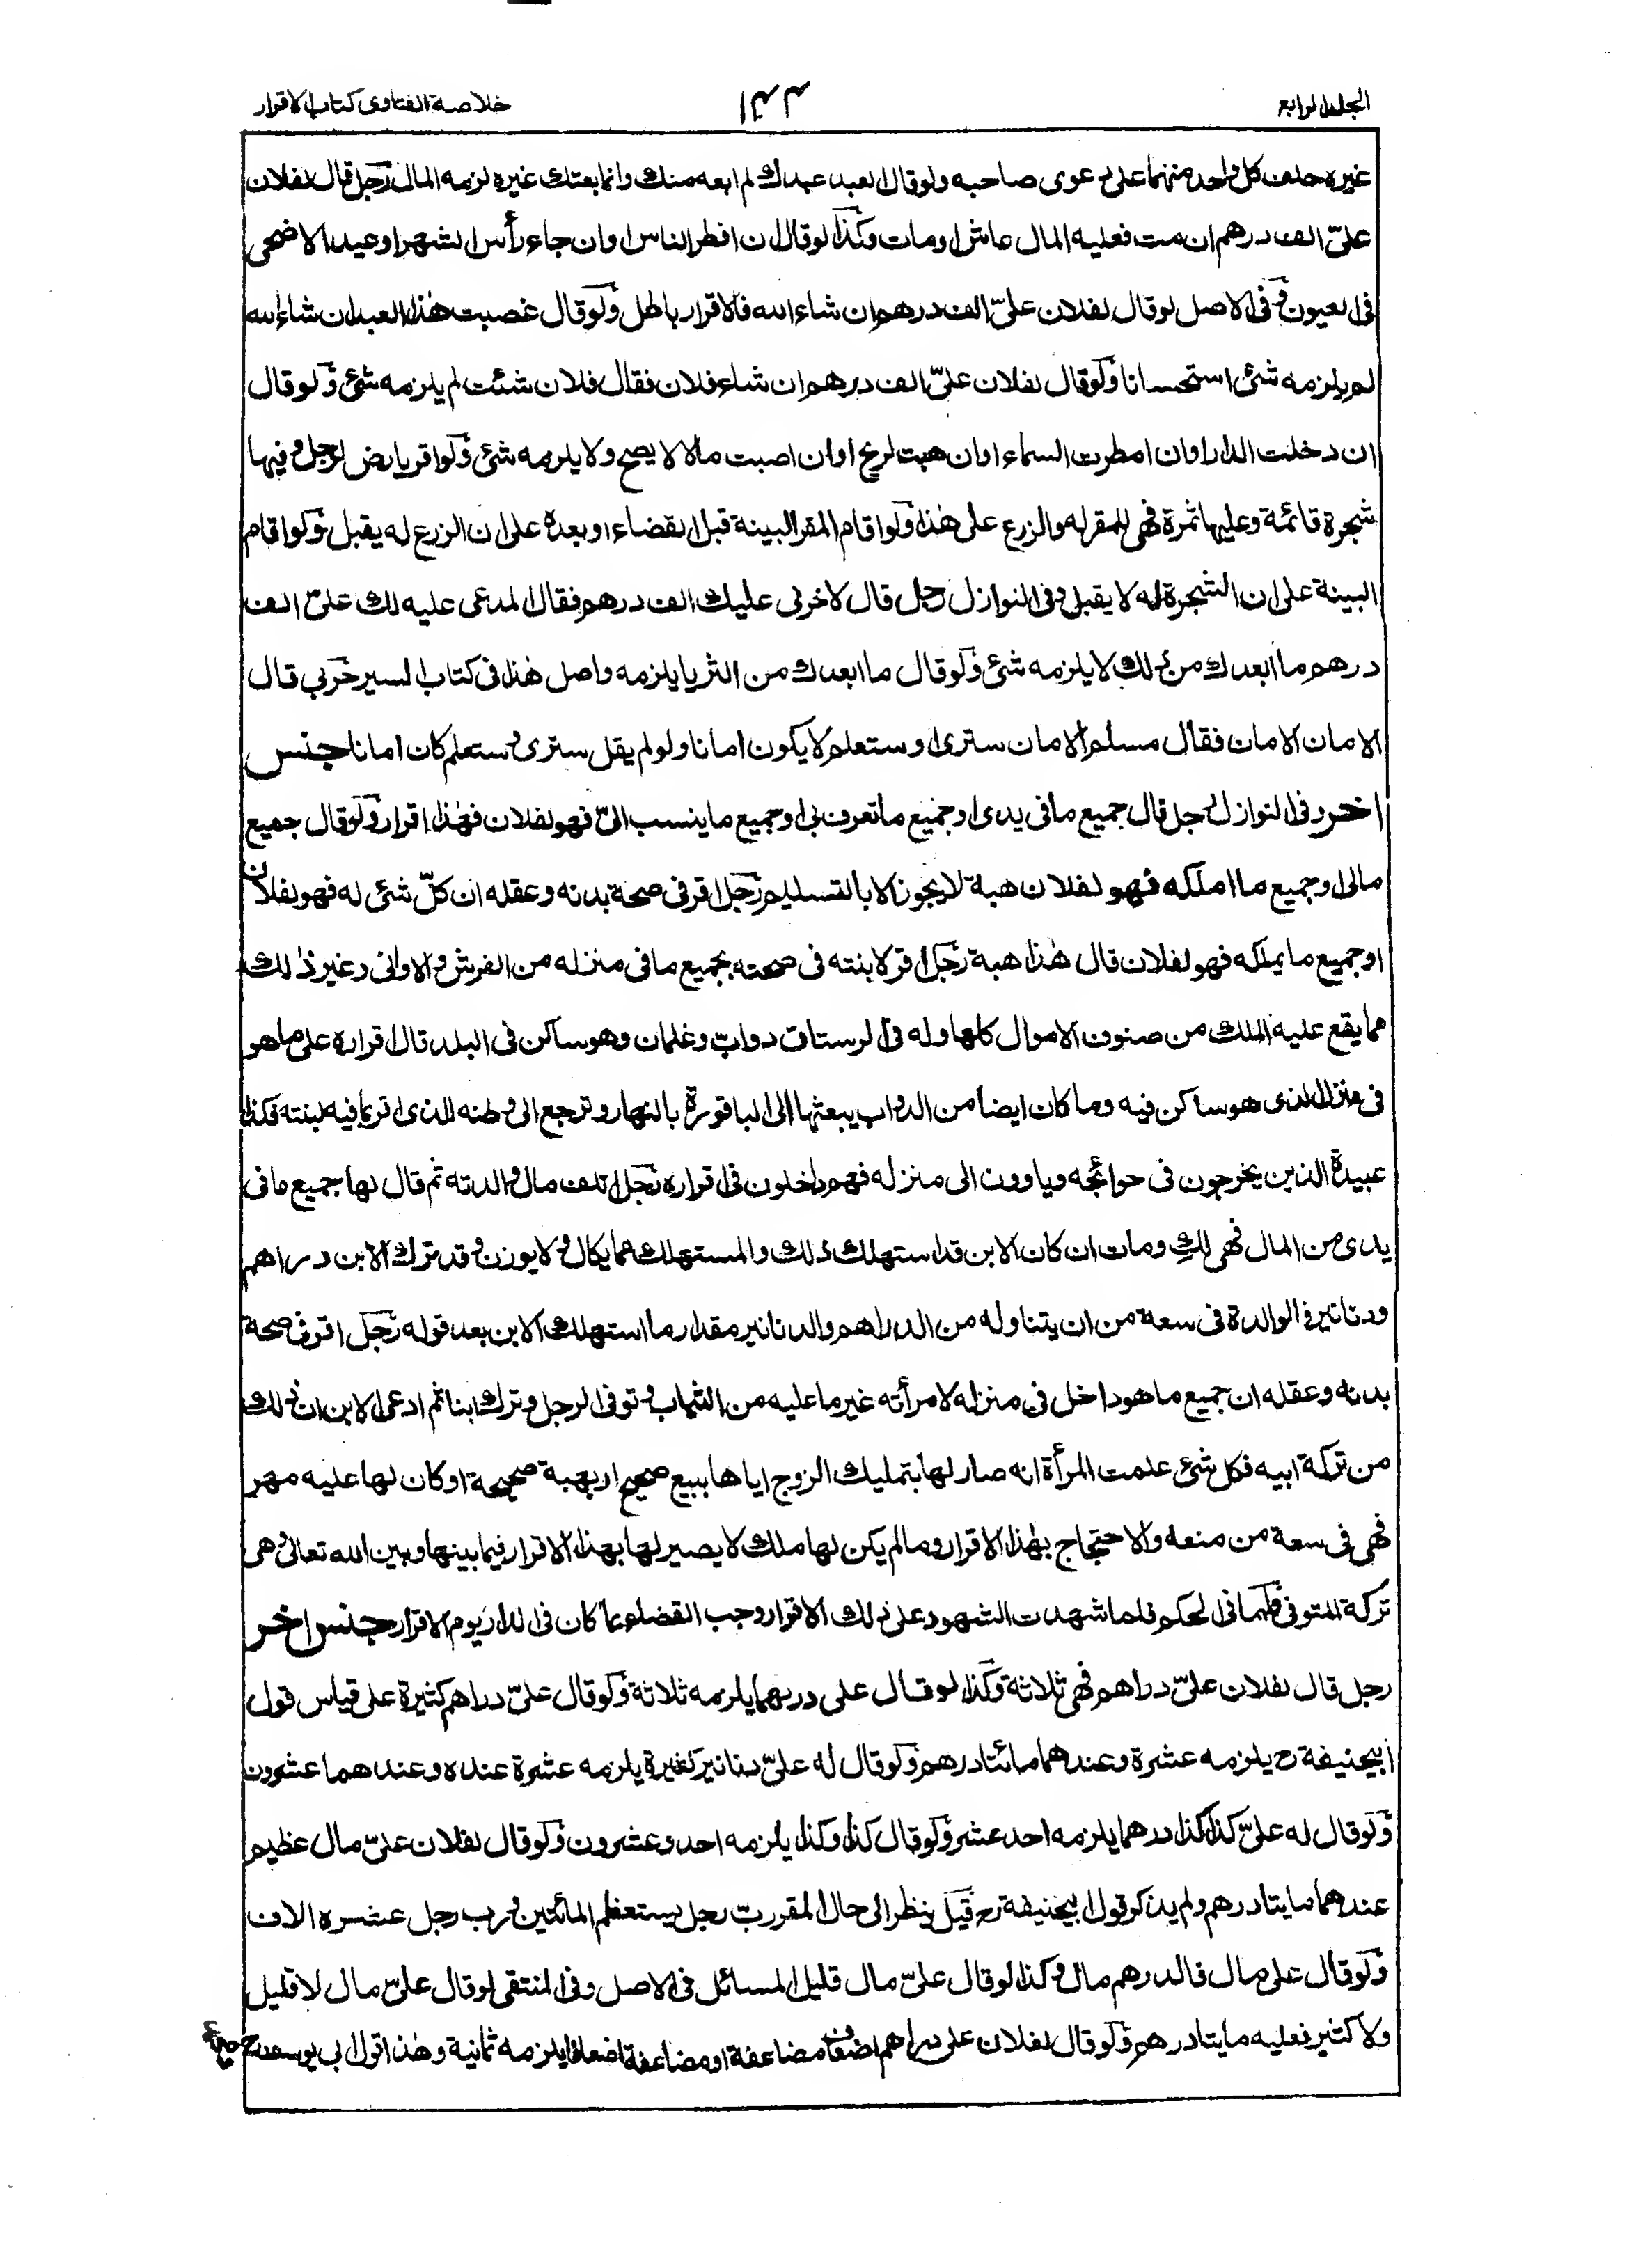 الجلد الرابع
١٤٣
خلاصة الفتاوى كتاب الاقرار
غيره حلف كل واحد منهما على دعوى صاحبه ولو قال العبد عبدك لم ابعه منك وانما بعتك غيره لزمه المال رجل قال لفلان
علىّ الف درهم ان مت فعليه المال عاش او مات وكذا لو قال ان افطر الناس او ان جاء رأس الشهر او عيد الاضحى
فى العيون وفى الاصل لو قال لفلان علىّ الف درهم ان شاء الله فالاقرار باطل ولو قال غصبت هذا العبد ان شاء الله
لم يلزمه شئ استحسانا ولو قال لفلان علىّ الف درهم ان شاء فلان فقال فلان شئت لم يلزمه شئ ولو قال
ان دخلت الدار او ان امطرت السماء او ان هبت الريح او ان اصبت مالا لا يصح ولا يلزمه شئ ولو اقر بارض لرجل وفيها
شجرة قائمة وعليها ثمرة فهى للمقر له والزرع على هذا ولو اقام المقر البينة قبل القضاء او بعده على ان الزرع له يقبل ولو اقام
البينة على ان الشجرة له لا يقبل وفى النوازل رجل قال لاخر لى عليك الف درهم فقال المدعى عليه لك علىّ الف
درهم ما ابعدك من ذلك لا يلزمه شئ ولو قال ما ابعدك من الثريا يلزمه واصل هذا فى كتاب السير حربى قال
الامان الامان فقال مسلم الامان سترى او ستعلم لا يكون امانا ولو لم يقل سترى وستعلم كان امانا جنس
اخر وفى النوازل رجل قال جميع ما فى يدى او جميع ما تعرف بى او جميع ما ينسب الىّ فهو لفلان فهذا اقرار ولو قال جميع
مالى او جميع ما املكه فهو لفلان هبة لا يجوز الا بالتسليم رجل اقر فى صحة بدنه وعقله ان كلّ شئ له فهو لفلان
او جميع ما يملكه فهو لفلان قال هذا هبة رجل اقر لابنته فى صحته بجميع ما فى منزله من الفرش والاوانى وغير ذلك
مما يقع عليه الملك من صنوف الاموال كلها وله فى الرستاق دوابّ وغلمان وهو ساكن فى البلد قال اقراره على ما هو
فى منزل الذى هو ساكن فيه وما كان ايضا من الدواب يبعثها الى الباقورة بالنهار وترجع الى وطنه الذى اقر بما فيه لبنته فكذا
عبيدة الذين يخرجون فى حوائجه وياوون الى منزله فهم داخلون فى اقراره رجل اتلف مال والدته ثم قال لها جميع ما فى
يدى من المال فهى لكِ ومات ان كان الابن قد استهلك ذلك والمستهلك مما يكال ولا يوزن وقد ترك الابن دراهم
ودنانير فالوالدة فى سعة من ان يتناوله من الدراهم والدنانير مقدار ما استهلك الابن بعد قوله رجل اقر فى صحة
بدنه وعقله ان جميع ما هو داخل فى منزله لامرأته غير ما عليه من الثياب وتوفى الرجل وترك ابنا ثم ادعى الابن ان ذلك
من تركة ابيه فكل شئ علمت المرأة انه صار لها بتمليك الزوج اياها ببيع صحيح او بهبة صحيحة او كان لها عليه مهر
فهى فى سعة من منعه والاحتجاج بهذا الاقرار وما لم يكن لها ملك لا يصير لها بهذا الاقرار فيما بينها وبين الله تعالى وهى
تركة المتوفى فاما فى الحكم فلما شهدت الشهود على ذلك الاقرار وجب القضاء بما كان فى الدار يوم الاقرار جنس اخر
رجل قال لفلان علىّ دراهم فهى ثلاثة وكذا لو قال على دريهما يلزمه ثلاثة ولو قال علىّ دراهم كثيرة على قياس قول
ابيحنيفة رح يلزمه عشرة وعندهما مائتا درهم ولو قال له علىّ دنانير كثيرة يلزمه عشرة عنده وعندهما عشرون
ولو قال له علىّ كذا كذا درهما يلزمه احد عشر ولو قال كذا وكذا يلزمه احد وعشرون ولو قال لفلان علىّ مال عظيم
عندهما مايتا درهم ولم يذكر قول ابيحنيفة رح قيل ينظر الى حال المقر ربّ رجل يستعظم المائتين ورب رجل عشره الاف
ولو قال على مال فالدرهم مال وكذا لو قال علىّ مال قليل المسائل فى الاصل وفى المنتقى لو قال علىّ مال لا قليل
ولا كثير فعليه مايتا درهم ولو قال لفلان على دراهم اضعاف مضاعفة او مضاعفة اضعافا يلزمه ثمانية وهذا قول ابى يوسف رح